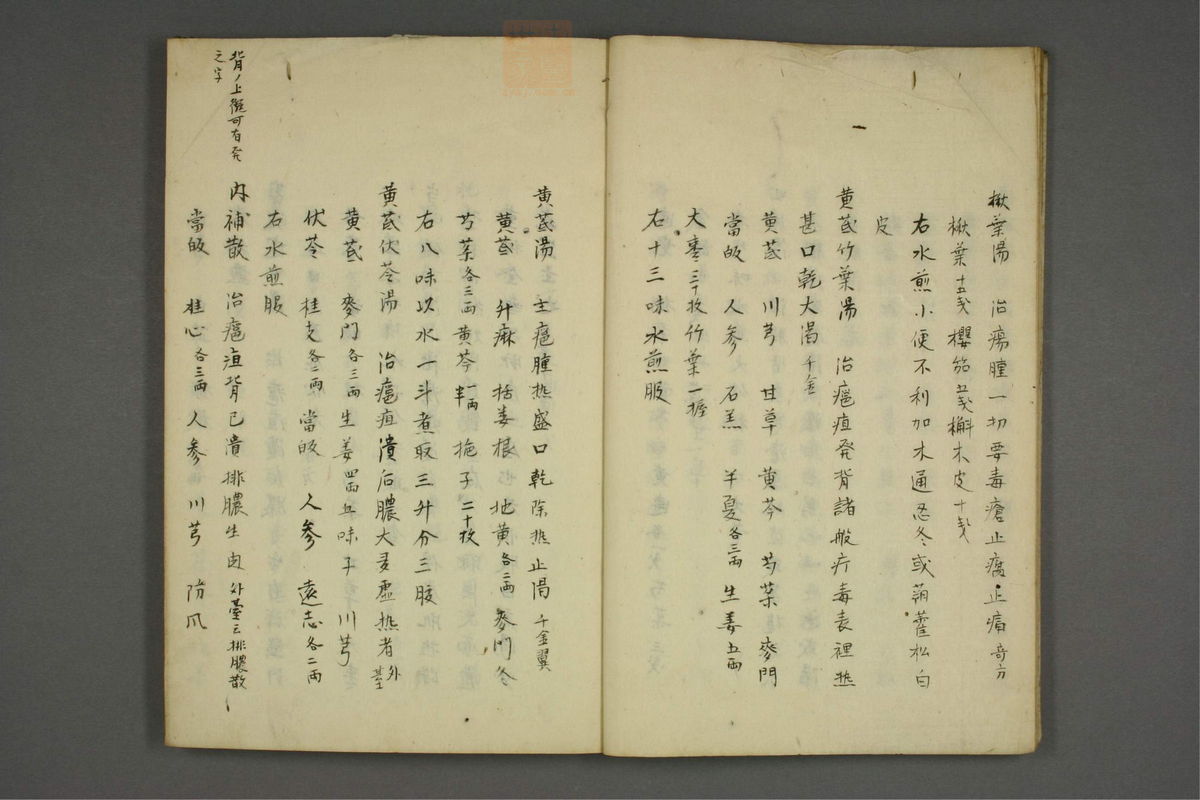 楸葉湯 治瘍腫一切要毒瘡止腐止痛 奇方
楸葉十五戔 櫻筎五戔 槲木皮十戔
右水煎小便不利加木通忍冬或蒴藋松白
皮
黄芪竹葉湯 治癰疽発背諸般疔毒表裡熱
甚口乾大渇 千金
黄芪 川芎 甘草 黄芩 芍薬 麥門
當皈 人参 石羔 半夏各三両 生姜五両
大棗三十枚 竹葉一握
右十三味水煎服
黄芪湯 主癰腫熱盛口乾除熱止渇 千金翼
黄芪 升麻 括蒌根 地黄各二両 麥門冬
芍薬各三両 黄芩一両半 梔子二十枚
右八味以水一斗煮取三升分三服
黄芪伏苓湯 治癰疽潰后膿大多虚热者 外臺
黄芪 麥門各三両 生姜四両 五味子 川芎
伏苓 桂支各二両 當皈 人参 遠志各二両
右水煎服
背ノ上儗可有発
之字
内補散 治癰疽背已潰排膿生肉 外臺云排膿散
當皈 桂心各三両 人参 川芎 防風